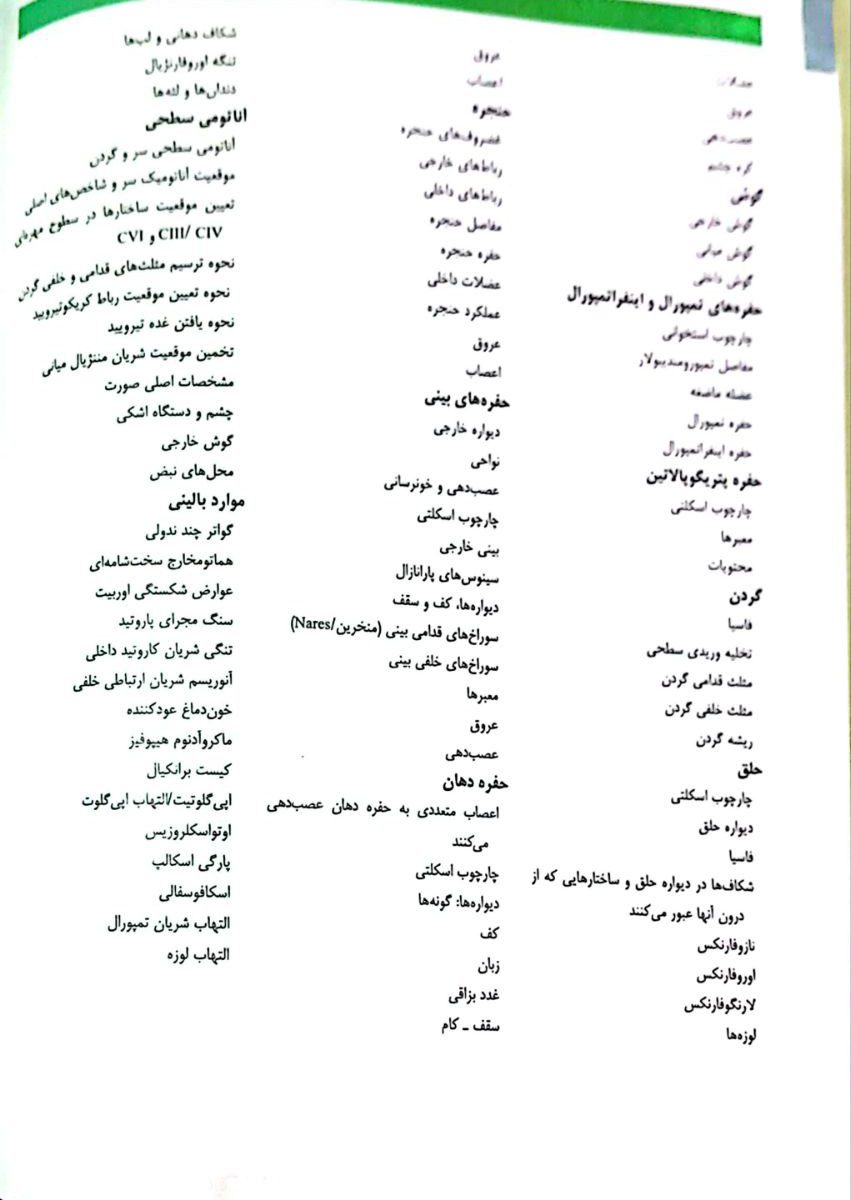 عضلات
عروق
عصب‌دهی
کره چشم
گوش
گوش خارجی
گوش میانی
گوش داخلی
حفره‌های تمپورال و اینفراتمپورال
چارچوب استخوانی
مفاصل تمپورومندیبولار
عضله ماضغه
حفره تمپورال
حفره اینفراتمپورال
حفره پتریگوپالاتین
چارچوب اسکلتی
معبرها
محتویات
گردن
فاسیا
تخلیه وریدی سطحی
مثلث قدامی گردن
مثلث خلفی گردن
ریشه گردن
حلق
چارچوب اسکلتی
دیواره حلق
فاسیا
شکاف‌ها در دیواره حلق و ساختارهایی که از
درون آنها عبور می‌کنند
نازوفارنکس
اوروفارنکس
لارنگوفارنکس
لوزه‌ها
عروق
اعصاب
حنجره
غضروف‌های حنجره
رباط‌های خارجی
رباط‌های داخلی
مفاصل حنجره
حفره حنجره
عضلات داخلی
عملکرد حنجره
عروق
اعصاب
حفره‌های بینی
دیواره خارجی
نواحی
عصب‌دهی و خونرسانی
چارچوب اسکلتی
بینی خارجی
سینوس‌های پارانازال
دیواره‌ها، کف و سقف
سوراخ‌های قدامی بینی (منخرین/Nares)
سوراخ‌های خلفی بینی
معبرها
عروق
عصب‌دهی
حفره دهان
اعصاب متعددی به حفره دهان عصب‌دهی
می‌کنند
چارچوب اسکلتی
دیواره‌ها: گونه‌ها
کف
زبان
غدد بزاقی
سقف ـ کام
شکاف دهانی و لب‌ها
تنگه اوروفارنژیال
دندان‌ها و لثه‌ها
اناتومی سطحی
آناتومی سطحی سر و گردن
موقعیت آناتومیک سر و شاخص‌های اصلی
تعیین موقعیت ساختارها در سطوح مهره‌ای
CIII/ CIV و CVI
نحوه ترسیم مثلث‌های قدامی و خلفی گردن
نحوه تعیین موقعیت رباط کریکوتیرویید
نحوه یافتن غده تیرویید
تخمین موقعیت شریان مننژیال میانی
مشخصات اصلی صورت
چشم و دستگاه اشکی
گوش خارجی
محل‌های نبض
موارد بالینی
گواتر چند ندولی
هماتومخارج سخت‌شامه‌ای
عوارض شکستگی اوربیت
سنگ مجرای پاروتید
تنگی شریان کاروتید داخلی
آنوریسم شریان ارتباطی خلفی
خون‌دماغ عودکننده
ماکروآدنوم هیپوفیز
کیست برانکیال
اپی‌گلوتیت/التهاب اپی‌گلوت
اوتواسکلروزیس
پارگی اسکالپ
اسکافوسفالی
التهاب شریان تمپورال
التهاب لوزه